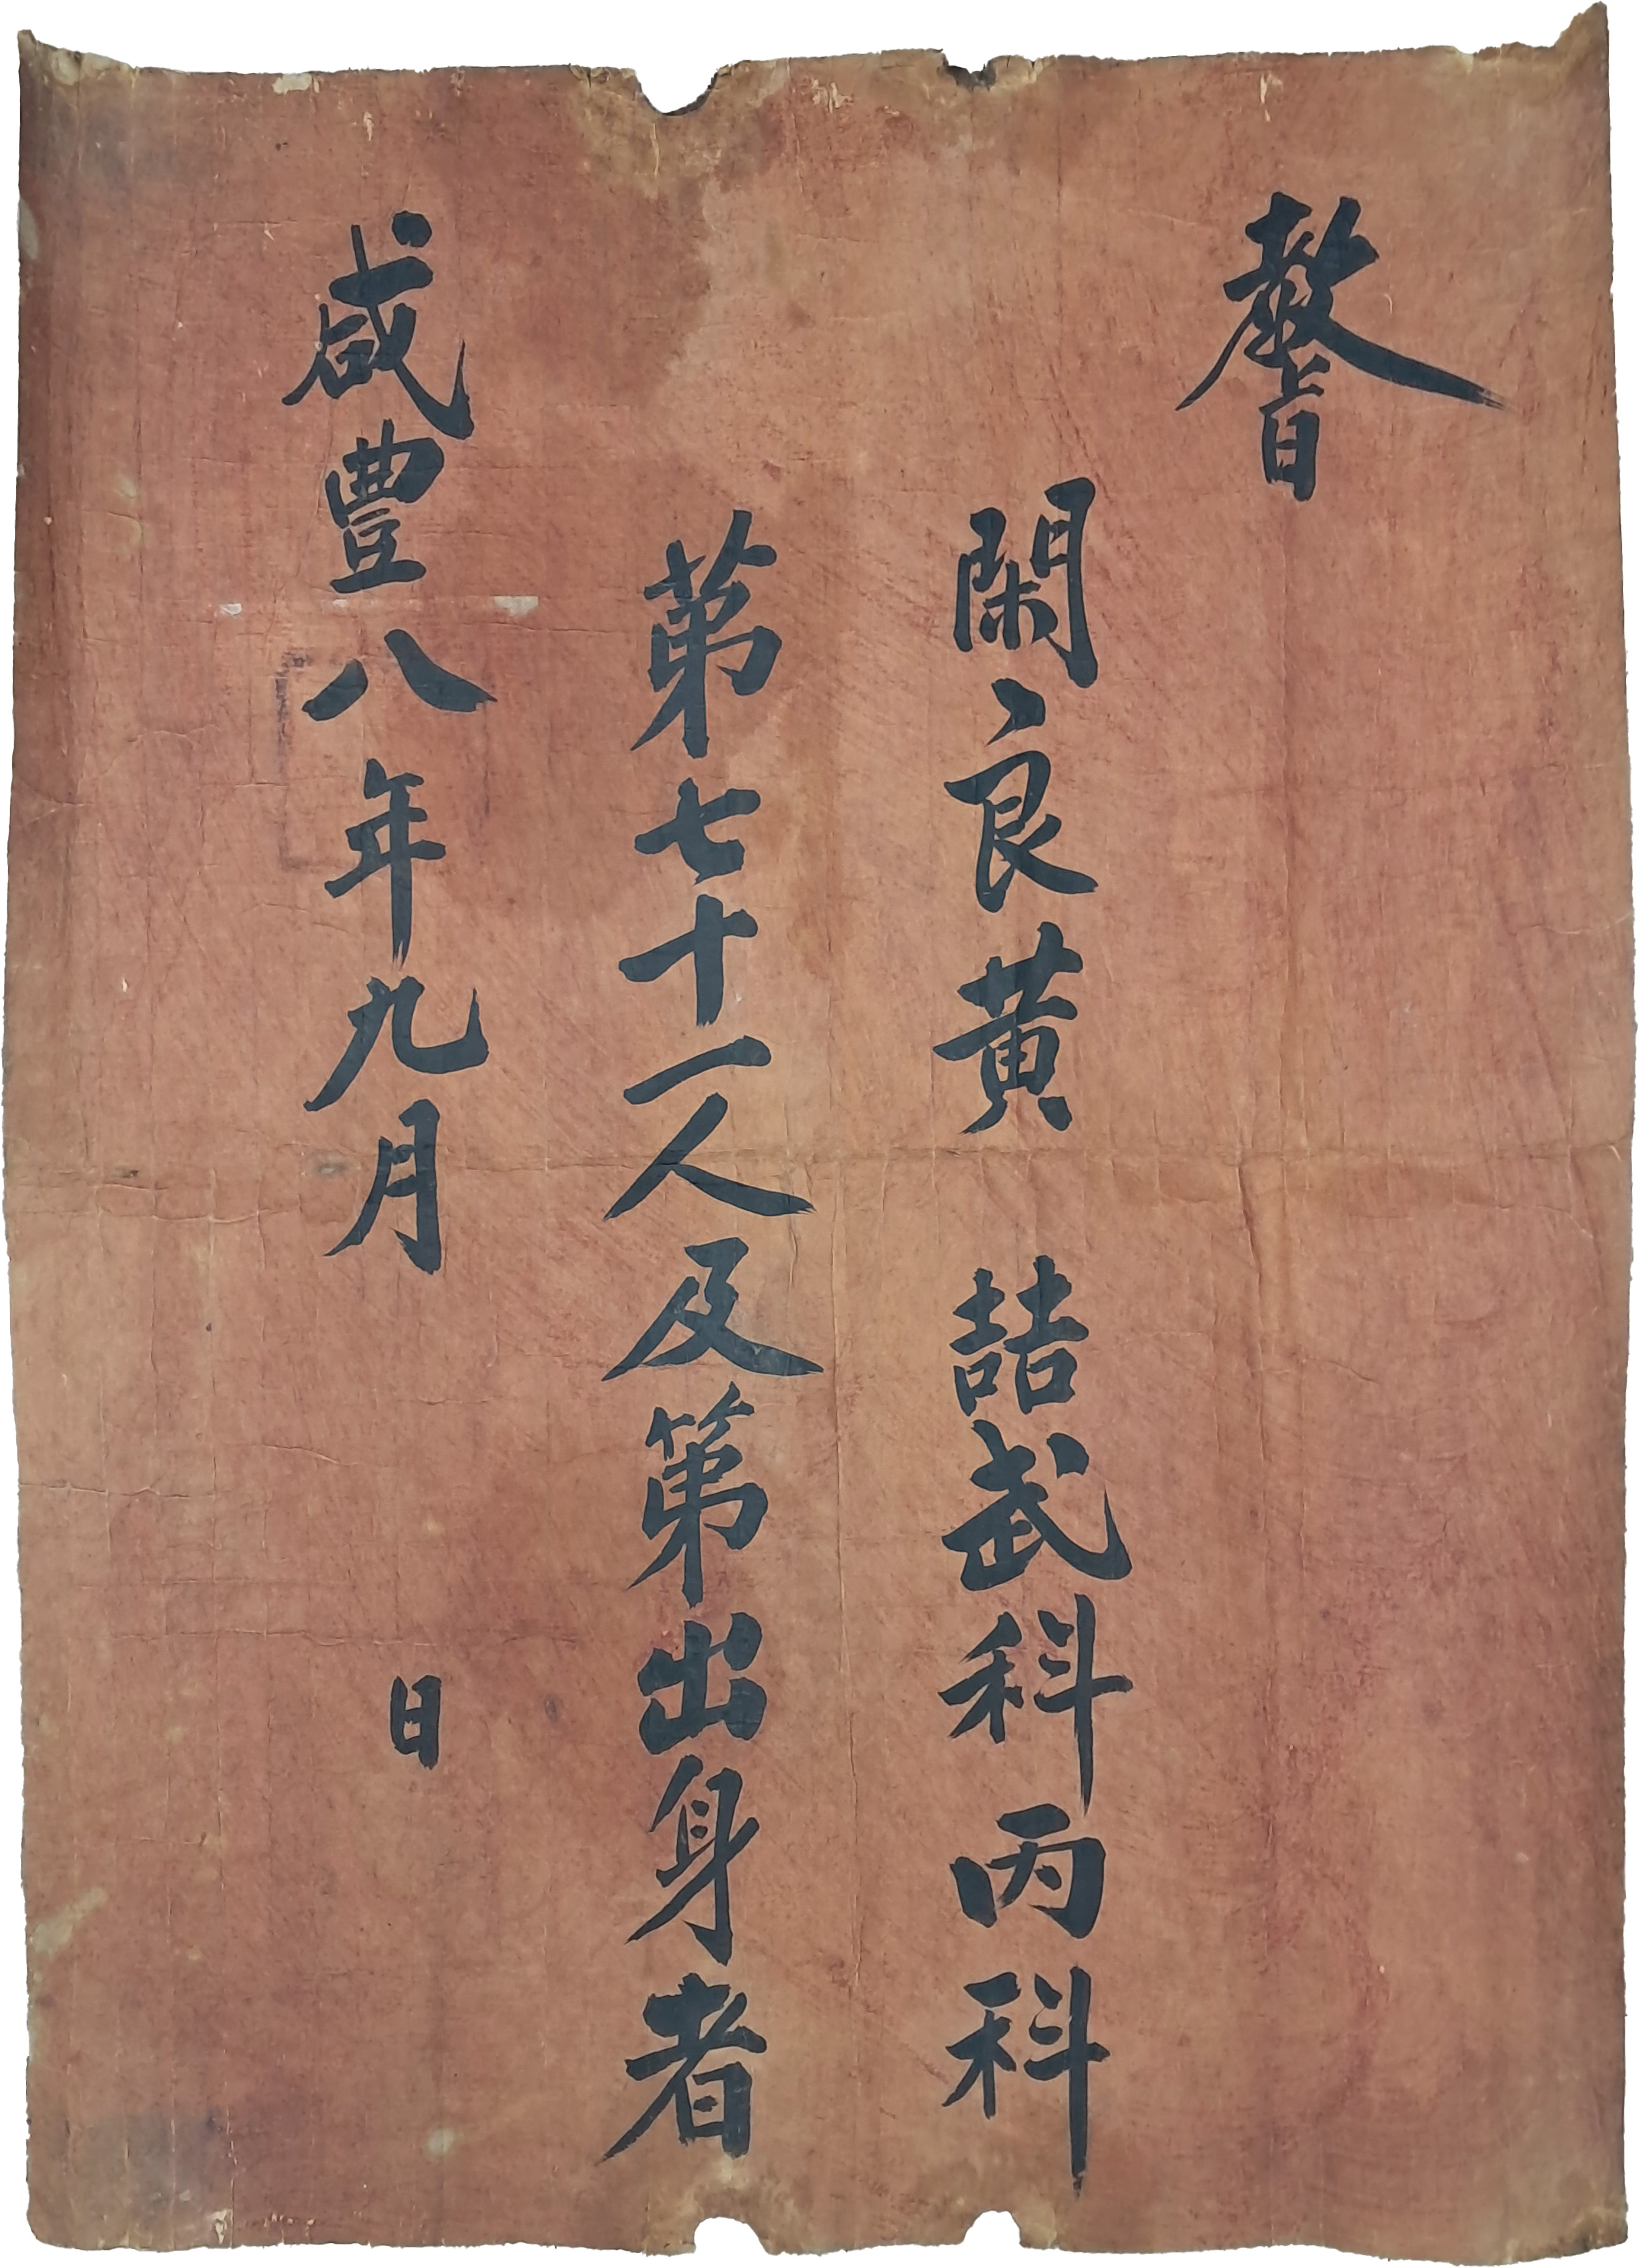 教旨
閑良黃喆武科丙科
第七十一人及第出身者
咸豊八年九月 日